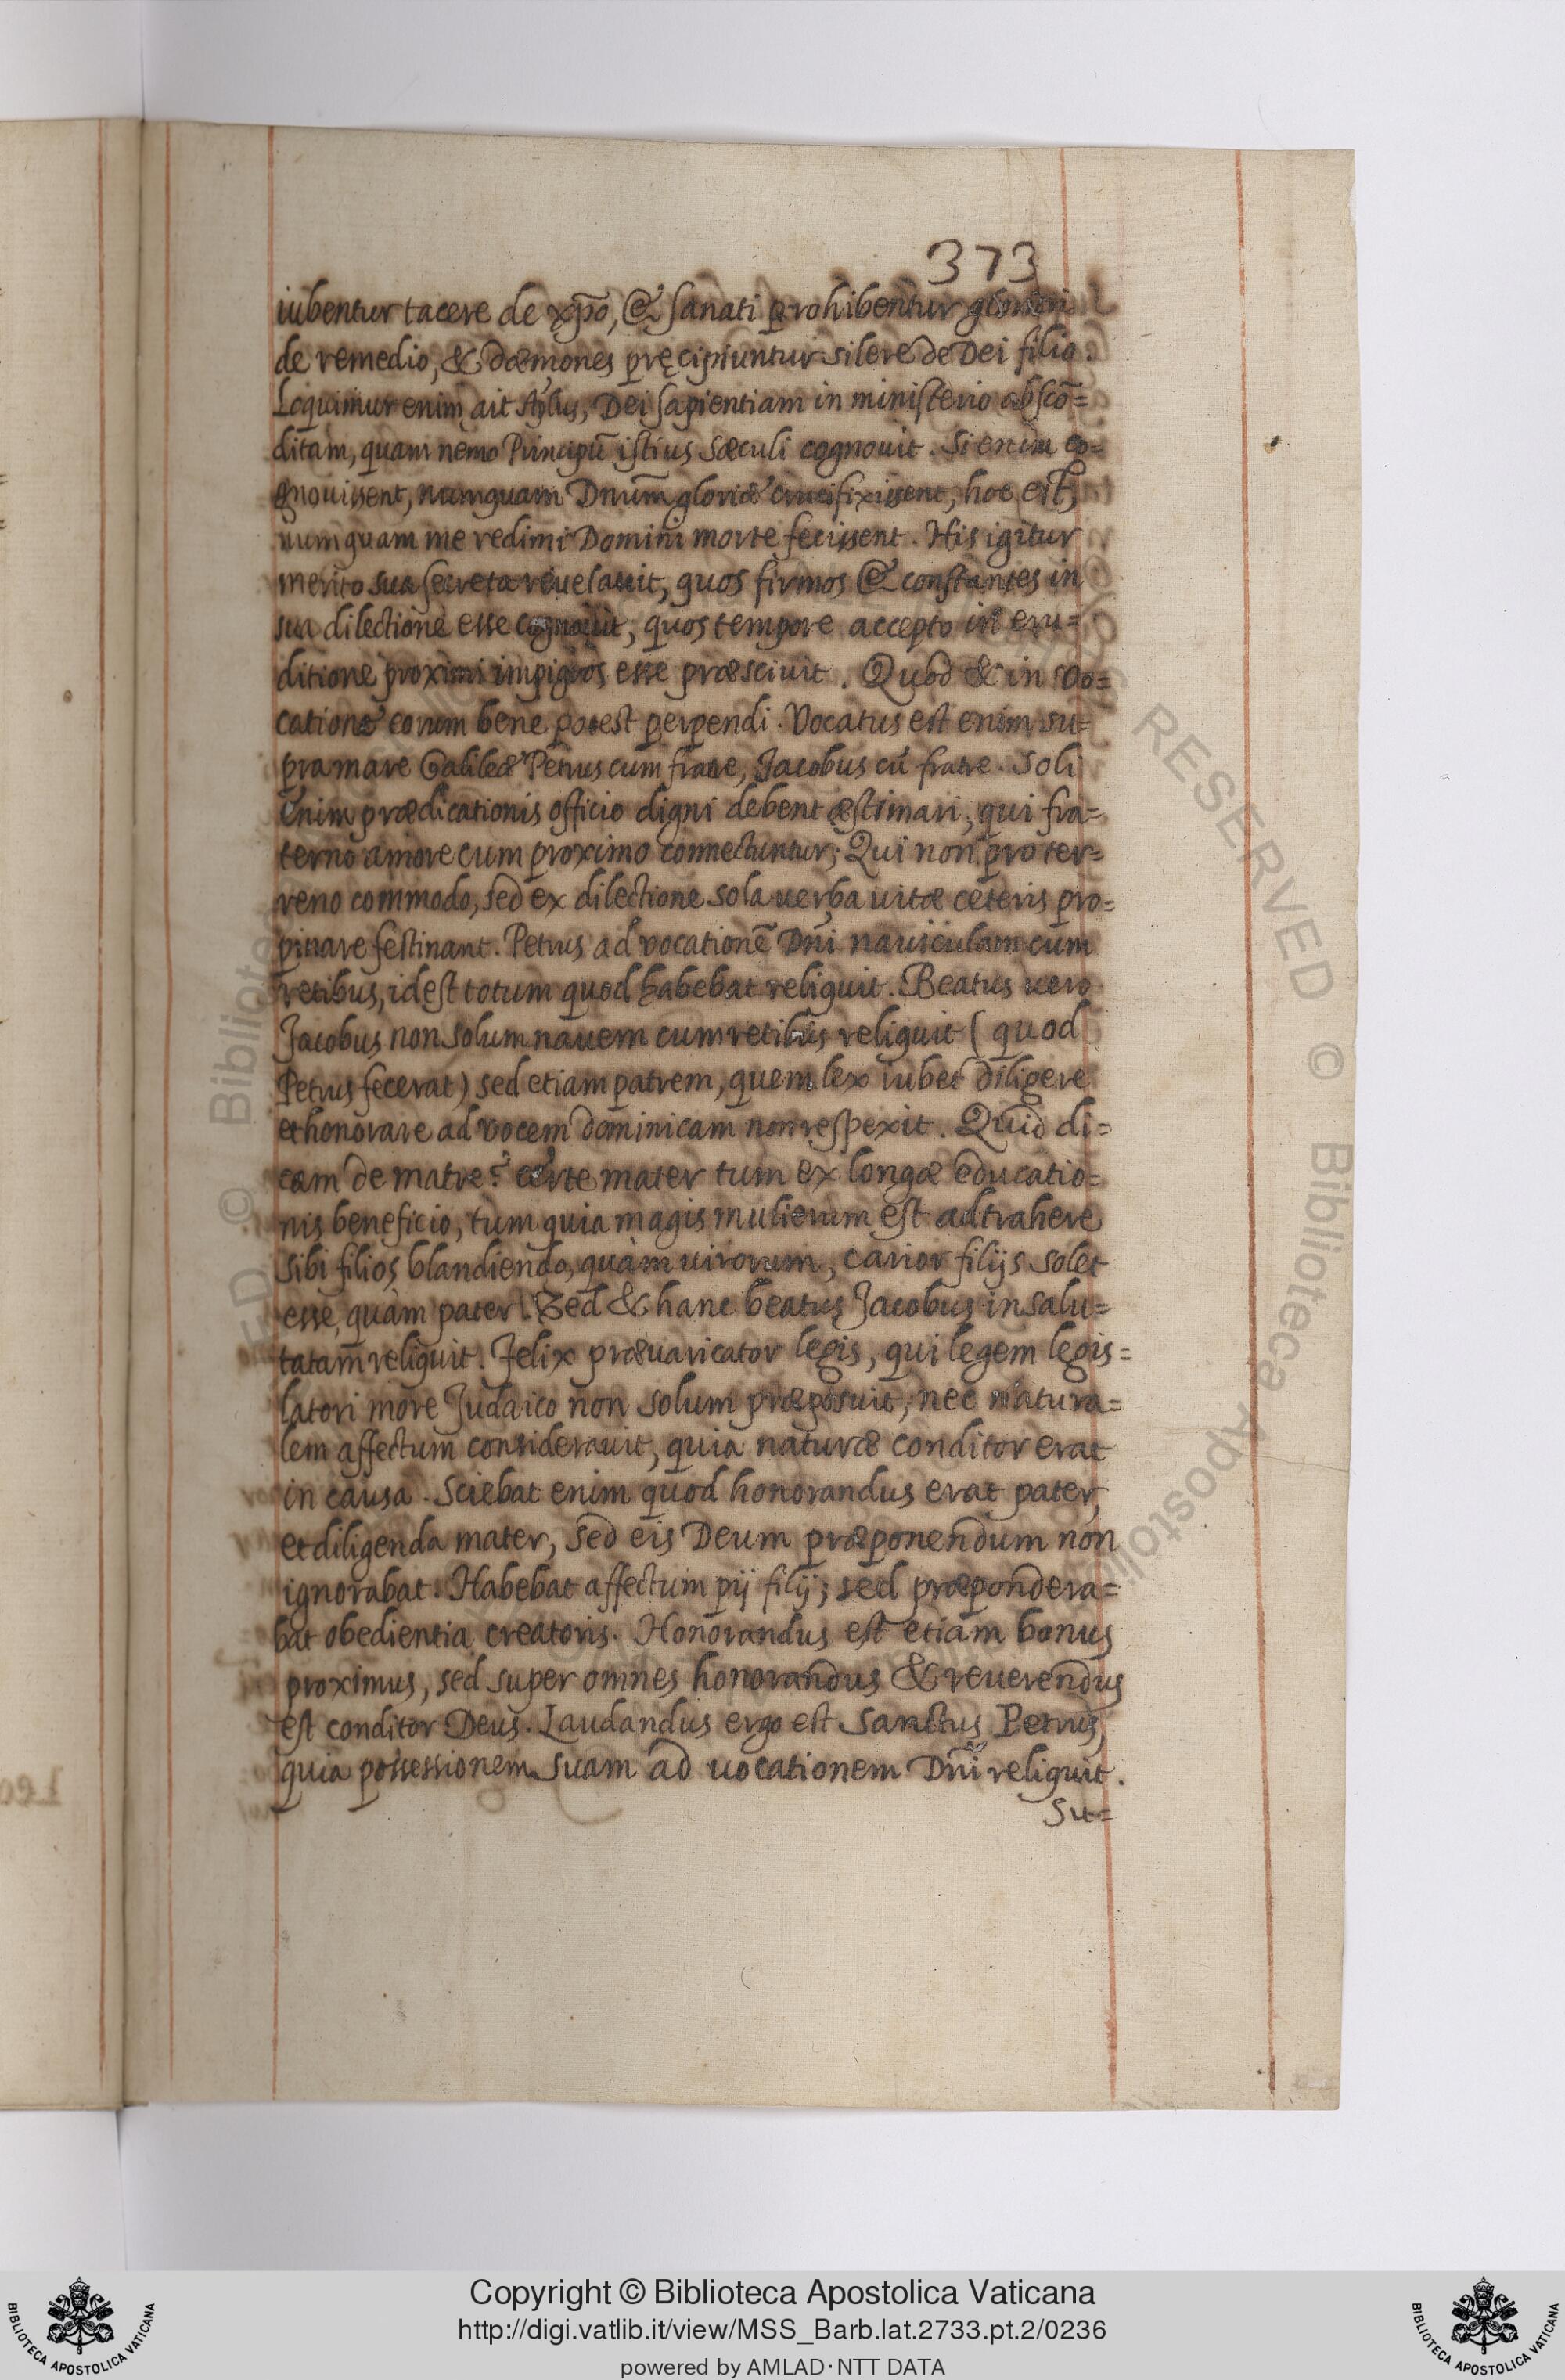 373
iubentur tacere de xp̄o, & sanati prohibentur gloriari
de remedio, & dæmones pręcipiuntur silere de Dei filio.
Loquimur enim, ait Aplus, Dei sapientiam in ministerio abscō=
ditam, quam nemo Principū istius sæculi cognouit. Si enim co=
gnouissent, nunquam Dnūm gloriæ crucifixissent, hoc est,
numquam me redimi Domini morte fecissent. His igitur
merito sua secreta reuelauit, quos firmos & constantes in
sua dilectione esse cognouit, quos tempore accepto in eru=
ditione proximi impigros esse præsciuit. Quod & in vo=
catione eorum bene potest perpendi. Vocatus est enim su=
pra mare Galileæ Petrus cum fratre, Jacobus cū fratre. Soli
enim prædicationis officio digni debent æstimari, qui fra=
terno amore cum proximo connectuntur; Qui non pro ter=
reno commodo, sed ex dilectione sola uerba uitæ ceteris pro=
pinare festinant. Petrus ad vocationē Dni nauiculam cum
retibus, id est totum quod habebat reliquit. Beatus uero
Jacobus non solum nauem cum retibus reliquit (quod
Petrus fecerat) sed etiam patrem, quem lex iubet diligere
et honorare ad vocem dominicam non respexit. Quid di=
cam de matre? certe mater tum ex longæ educatio=
nis beneficio, tum quia magis mulierum est adtrahere
sibi filios blandiendo, quàm uirorum, carior filijs solet
esse, quàm pater. Sed & hanc beatus Jacobus insalu=
tatam reliquit. Felix præuaricator legis, qui legem legis=
latori more Judaico non solum præposuit, nec natura=
lem affectum considerauit, quia naturæ conditor erat
in causa. Sciebat enim quod honorandus erat pater,
et diligenda mater, sed eis Deum præponendum non
ignorabat. Habebat affectum pij filij; sed præpondera=
bat obedientia creatoris. Honorandus est etiam bonus
proximus, sed super omnes honorandus & reuerendus
est conditor Deus. Laudandus ergo est Sanctus Petrus,
quia possessionem suam ad uocationem Dni reliquit.
Su=
Copyright © Biblioteca Apostolica Vaticana
http://digi.vatlib.it/view/MSS_Barb.lat.2733.pt.2/0236
powered by AMLAD · NTT DATA
BIBLIOTECA APOSTOLICA VATICANA
BIBLIOTECA APOSTOLICA VATICANA